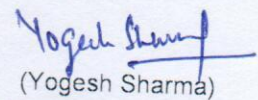 Yogesh Sharma
(Yogesh Sharma)